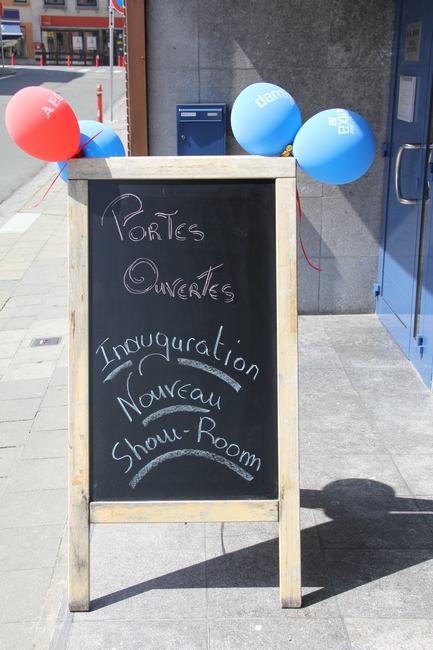 Portes
Ouvertes
Inauguration
Nouveau
Show-Room